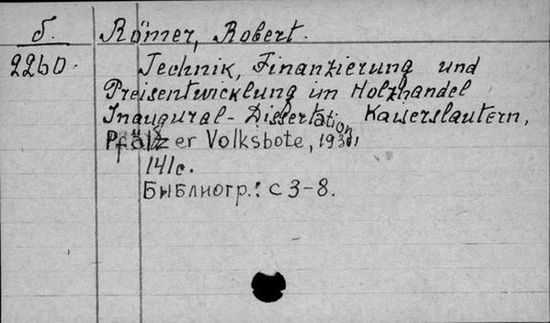 б. Römer, Robert.
2260. Technik, Finanzierung und
Preisentwicklung im Holzhandel
Inaugural-Dissertation Kaiserslautern,
Pfälzer Volksbote, 1931
141с.
Библиогр.: с 3-8.